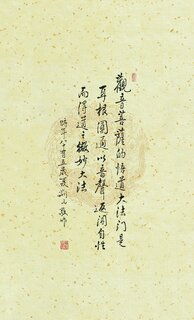 觀音菩薩的悟道大法門是
耳根圓通以音聲返聞自性
而得道之微妙大法
時年八十有五歲